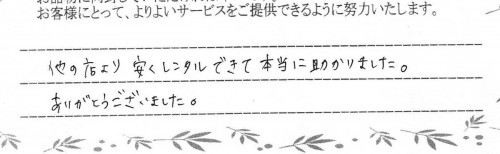 お客様にとって、よりよいサービスをご提供できるように努力いたします。
他の店より安くレンタルできて本当に助かりました。
ありがとうございました。